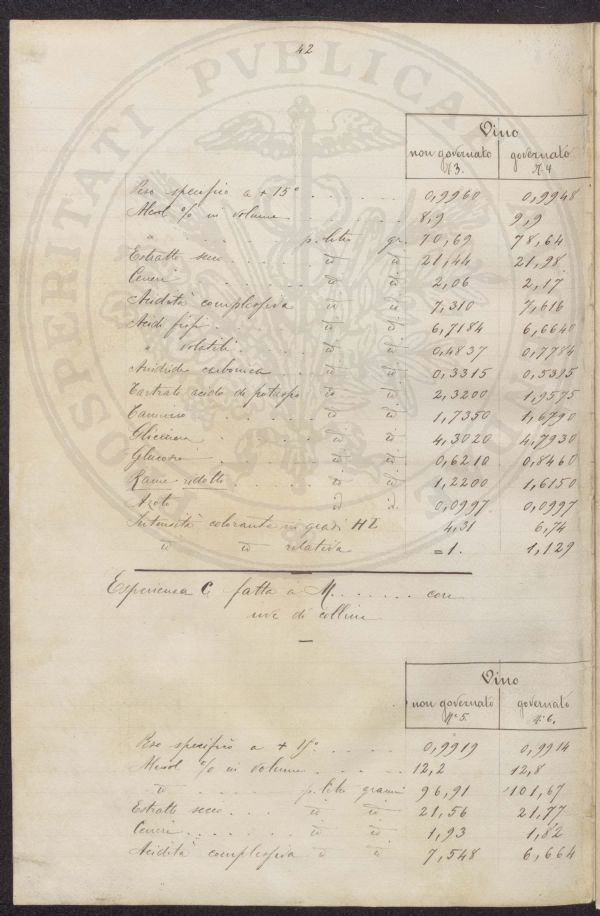 42
PROSPERITATI PVBLICAE
Vino
non governato governato
N. 3. N. 4
Peso specifico a + 15° 0,9960 0,9948
Alcol % in volume 8,9 9,9
" p. litro gr. 70,69 78,64
Estratto secco id id 21,44 21,98
Ceneri id id 2,06 2,17
Acidità complessiva id id 7,310 7,616
Acidi fissi id id 6,7184 6,6640
" volatili id id 0,4837 0,7784
Anidride carbonica id id 0,3315 0,5385
Tartrato acido di potassio id id 2,3200 1,9575
Tannino id id 1,7350 1,6790
Glicerina id id 4,3020 4,7930
Glucosio id id 0,6210 0,8460
Rame ridotto id id 1,2200 1,6150
Azoto id id 0,0997 0,0997
Intensità colorante in gradi HZ 4,31 6,74
id id relativa = 1. 1,129
Esperienza C fatta a M....... con
uve di collina
Vino
non governato governato
N° 5. N° 6.
Peso specifico a + 15° 0,9919 0,9914
Alcol % in volume 12,2 12,8
id p. litro grammi 96,91 101,67
Estratto secco id id 21,56 21,77
Ceneri id id 1,93 1,82
Acidità complessiva id id 7,548 6,664